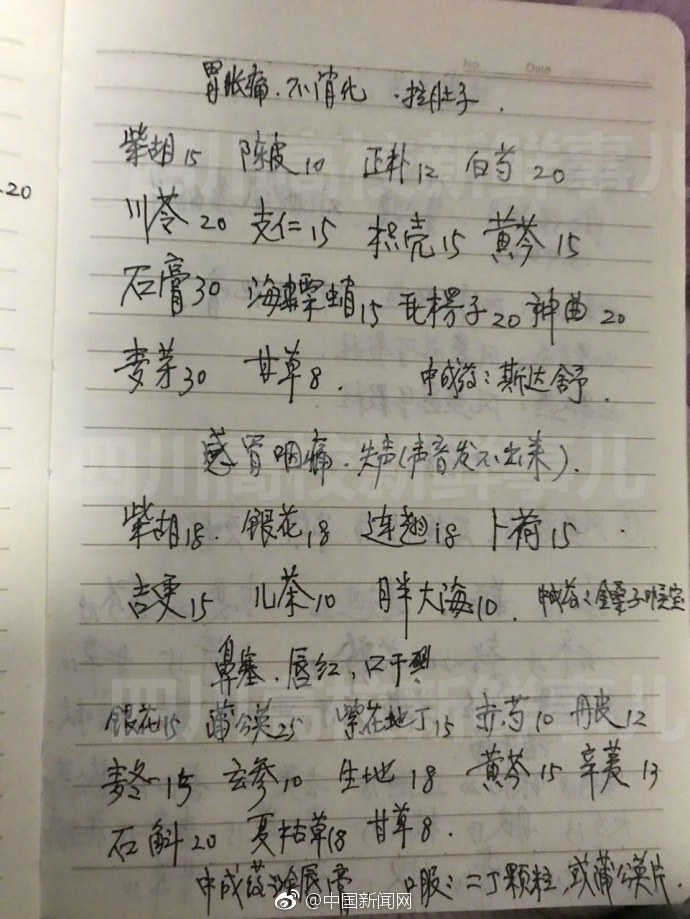 No. Date
胃胀痛.不消化.拉肚子.
.20
柴胡15 陈皮10 正朴12 白芍20
川芎20 支仁15 枳壳15 黄芩15
石膏30 海螵蛸15 瓦楞子20 神曲20
麦芽30 甘草8. 中成药:斯达舒.
感冒咽痛.失声(声音发不出来).
柴胡18. 银花18 连翘18 卜荷15
吉更15 儿茶10 胖大海10. 中成药:金嗓子喉宝
鼻塞.唇红,口干
银花15 蒲公英25 紫花地丁15 赤芍10 丹皮12
麦冬15 玄参10 生地18 黄芩15 辛荑13
石斛20 夏枯草18 甘草8.
中成药: 膏 口服:二丁颗粒 或蒲公英片.
四川高校新鲜事儿
@中国新闻网